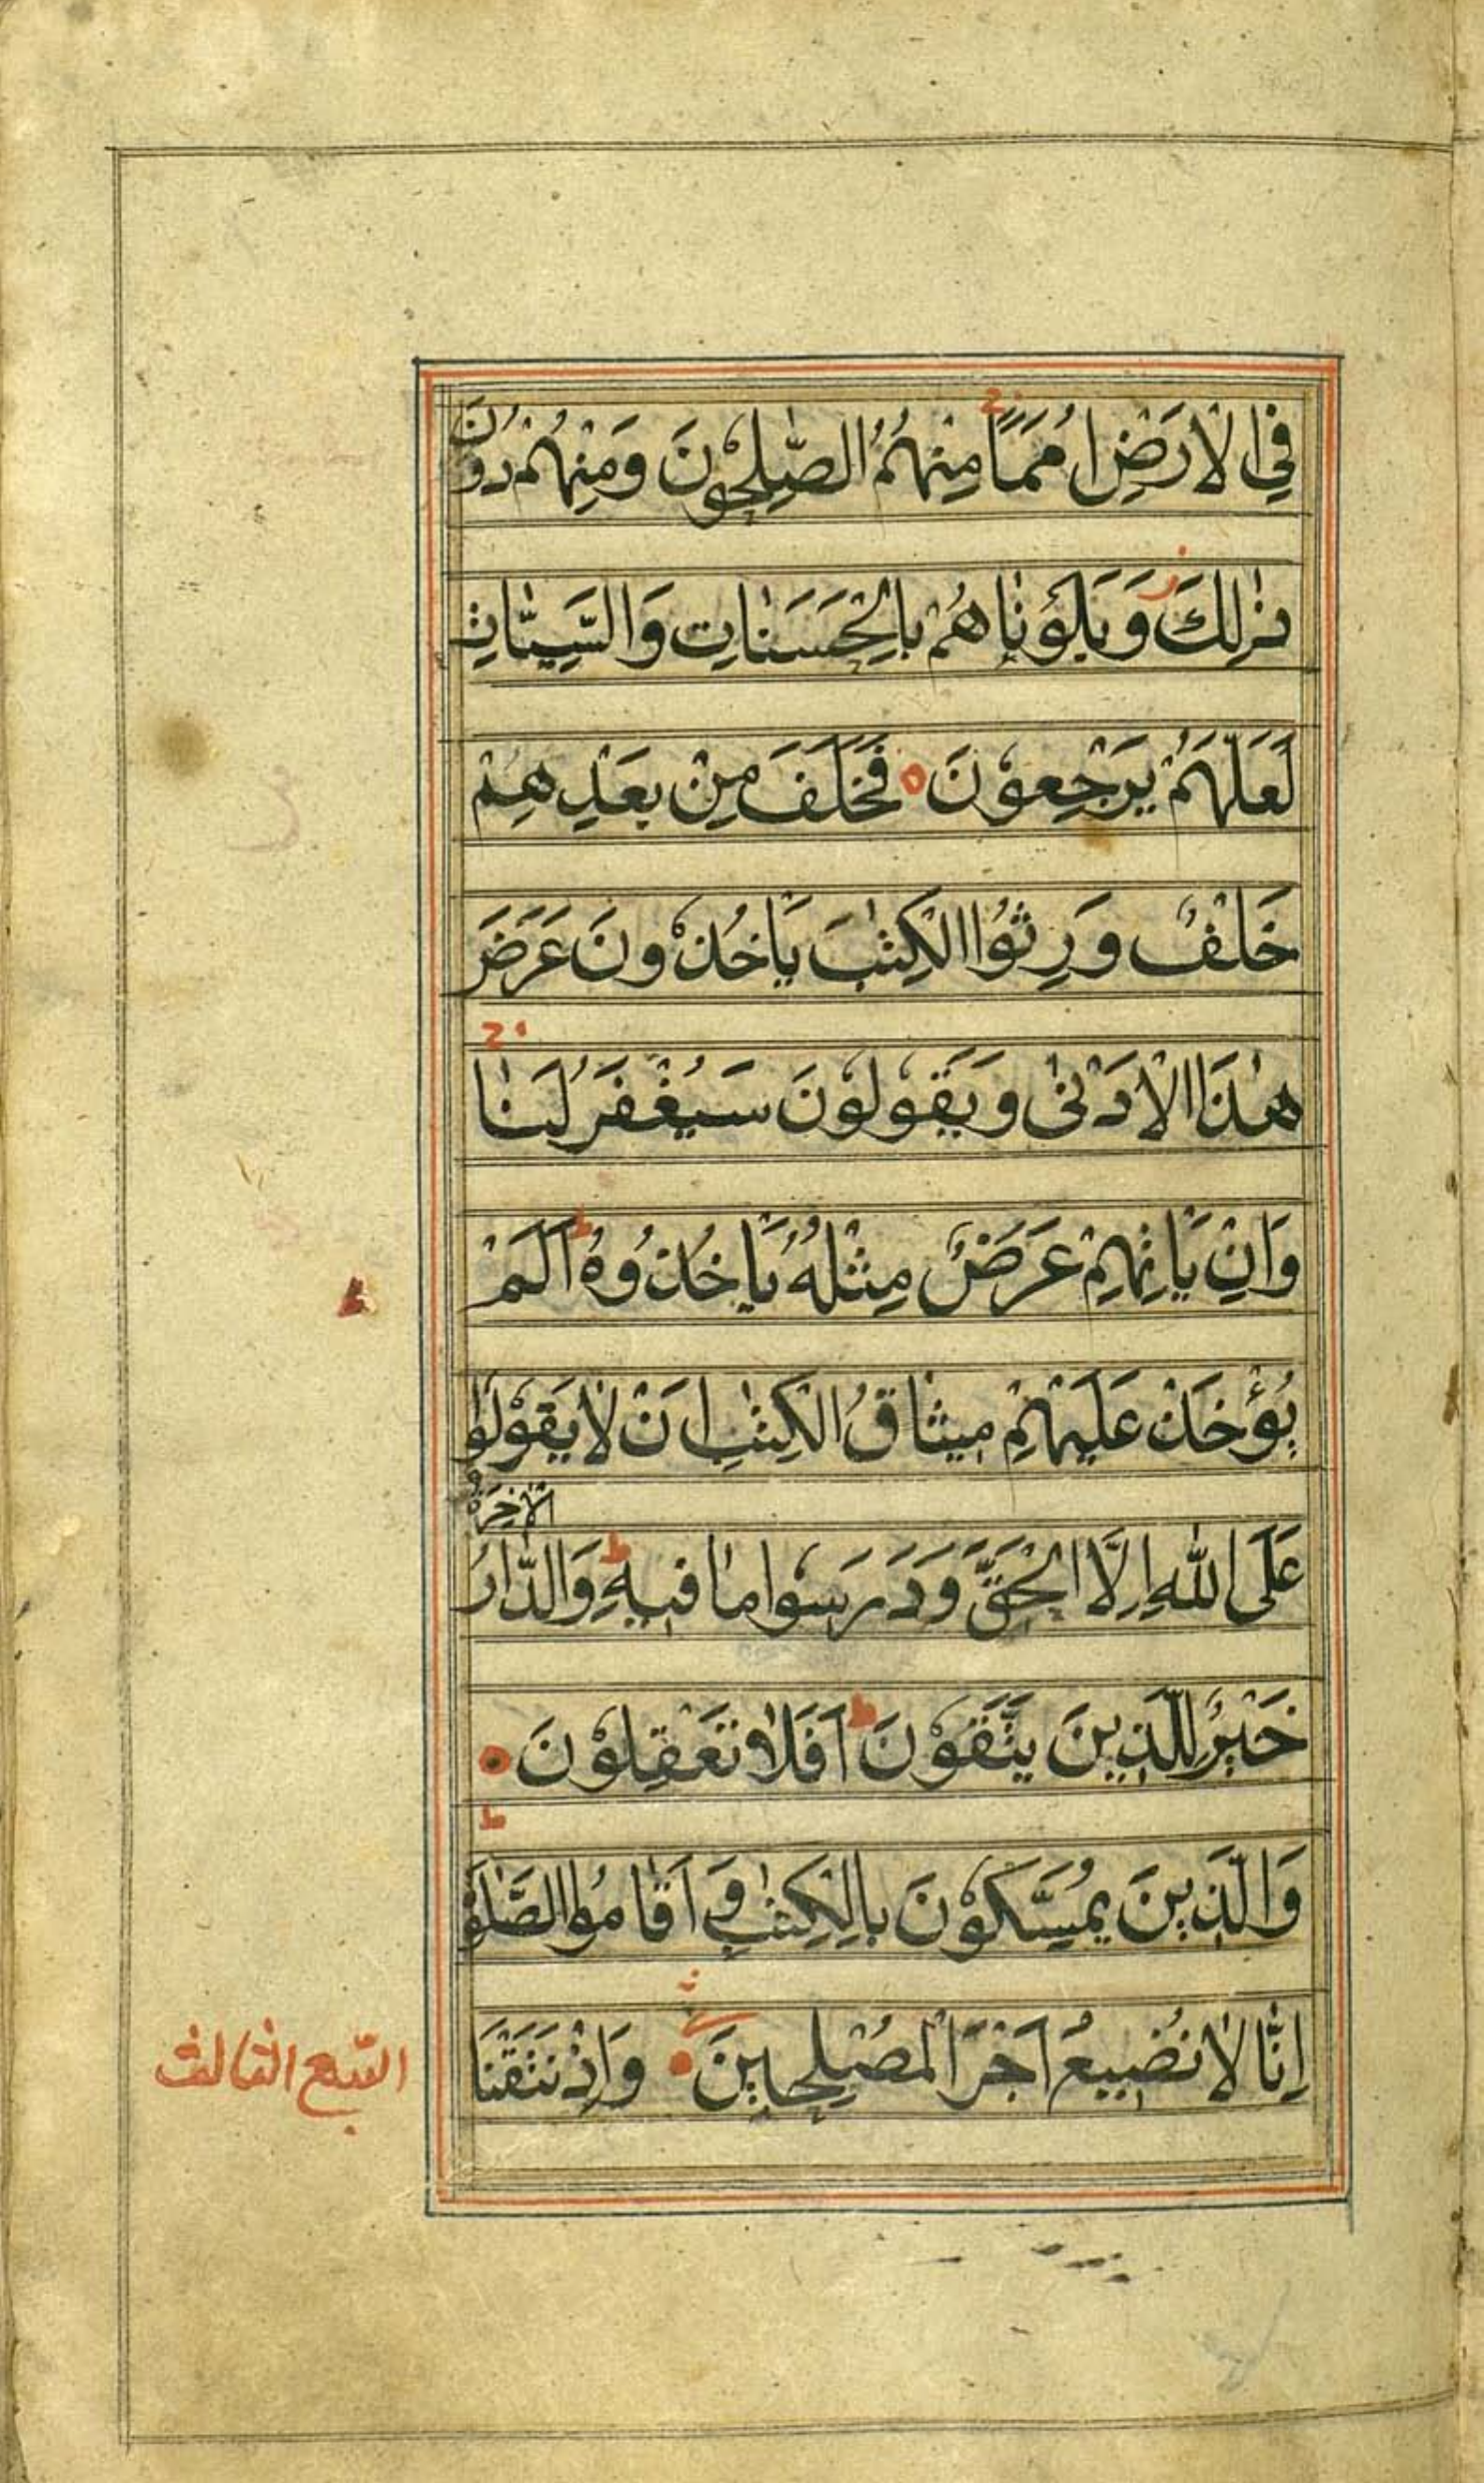 فِي الْاَرْضِ اُمَمًا مِنْهُمُ الصّٰلِحُوْنَ وَمِنْهُمْ دُوْنَ
ذٰلِكَ وَبَلَوْنٰاهُمْ بِالْحَسَنٰاتِ وَالسَّيِّئٰاتِ
لَعَلَّهُمْ يَرْجِعُوْنَ فَخَلَفَ مِنْ بَعْدِهِمْ
خَلْفٌ وَرِثُوْا الْكِتٰبَ يَاخُذُوْنَ عَرَضَ
هٰذَا الْاَدْنٰى وَيَقُوْلُوْنَ سَيُغْفَرُ لَنٰا
وَاِنْ يَاْتِهِمْ عَرَضٌ مِثْلُهُ يَاْخُذُوْهُ اَلَمْ
يُؤْخَذْ عَلَيْهِمْ مِيثٰاقُ الْكِتٰبِ اَنْ لٰا يَقُوْلُوا
عَلَى اللّٰهِ اِلَّا الْحَقَّ وَدَرَسُوا مٰا فِيهِ وَالدّٰارُ
الْاٰخِرَةُ
خَيْرٌ لِلَّذِينَ يَتَّقُوْنَ اَفَلٰا تَعْقِلُوْنَ
وَالَّذِينَ يُمَسِّكُوْنَ بِالْكِتٰبِ وَاَقٰامُوا الصَّلٰوةَ
اِنّٰا لٰا نُضِيعُ اَجْرَ الْمُصْلِحِينَ وَاِذْ نَتَقْنَا
الثالث